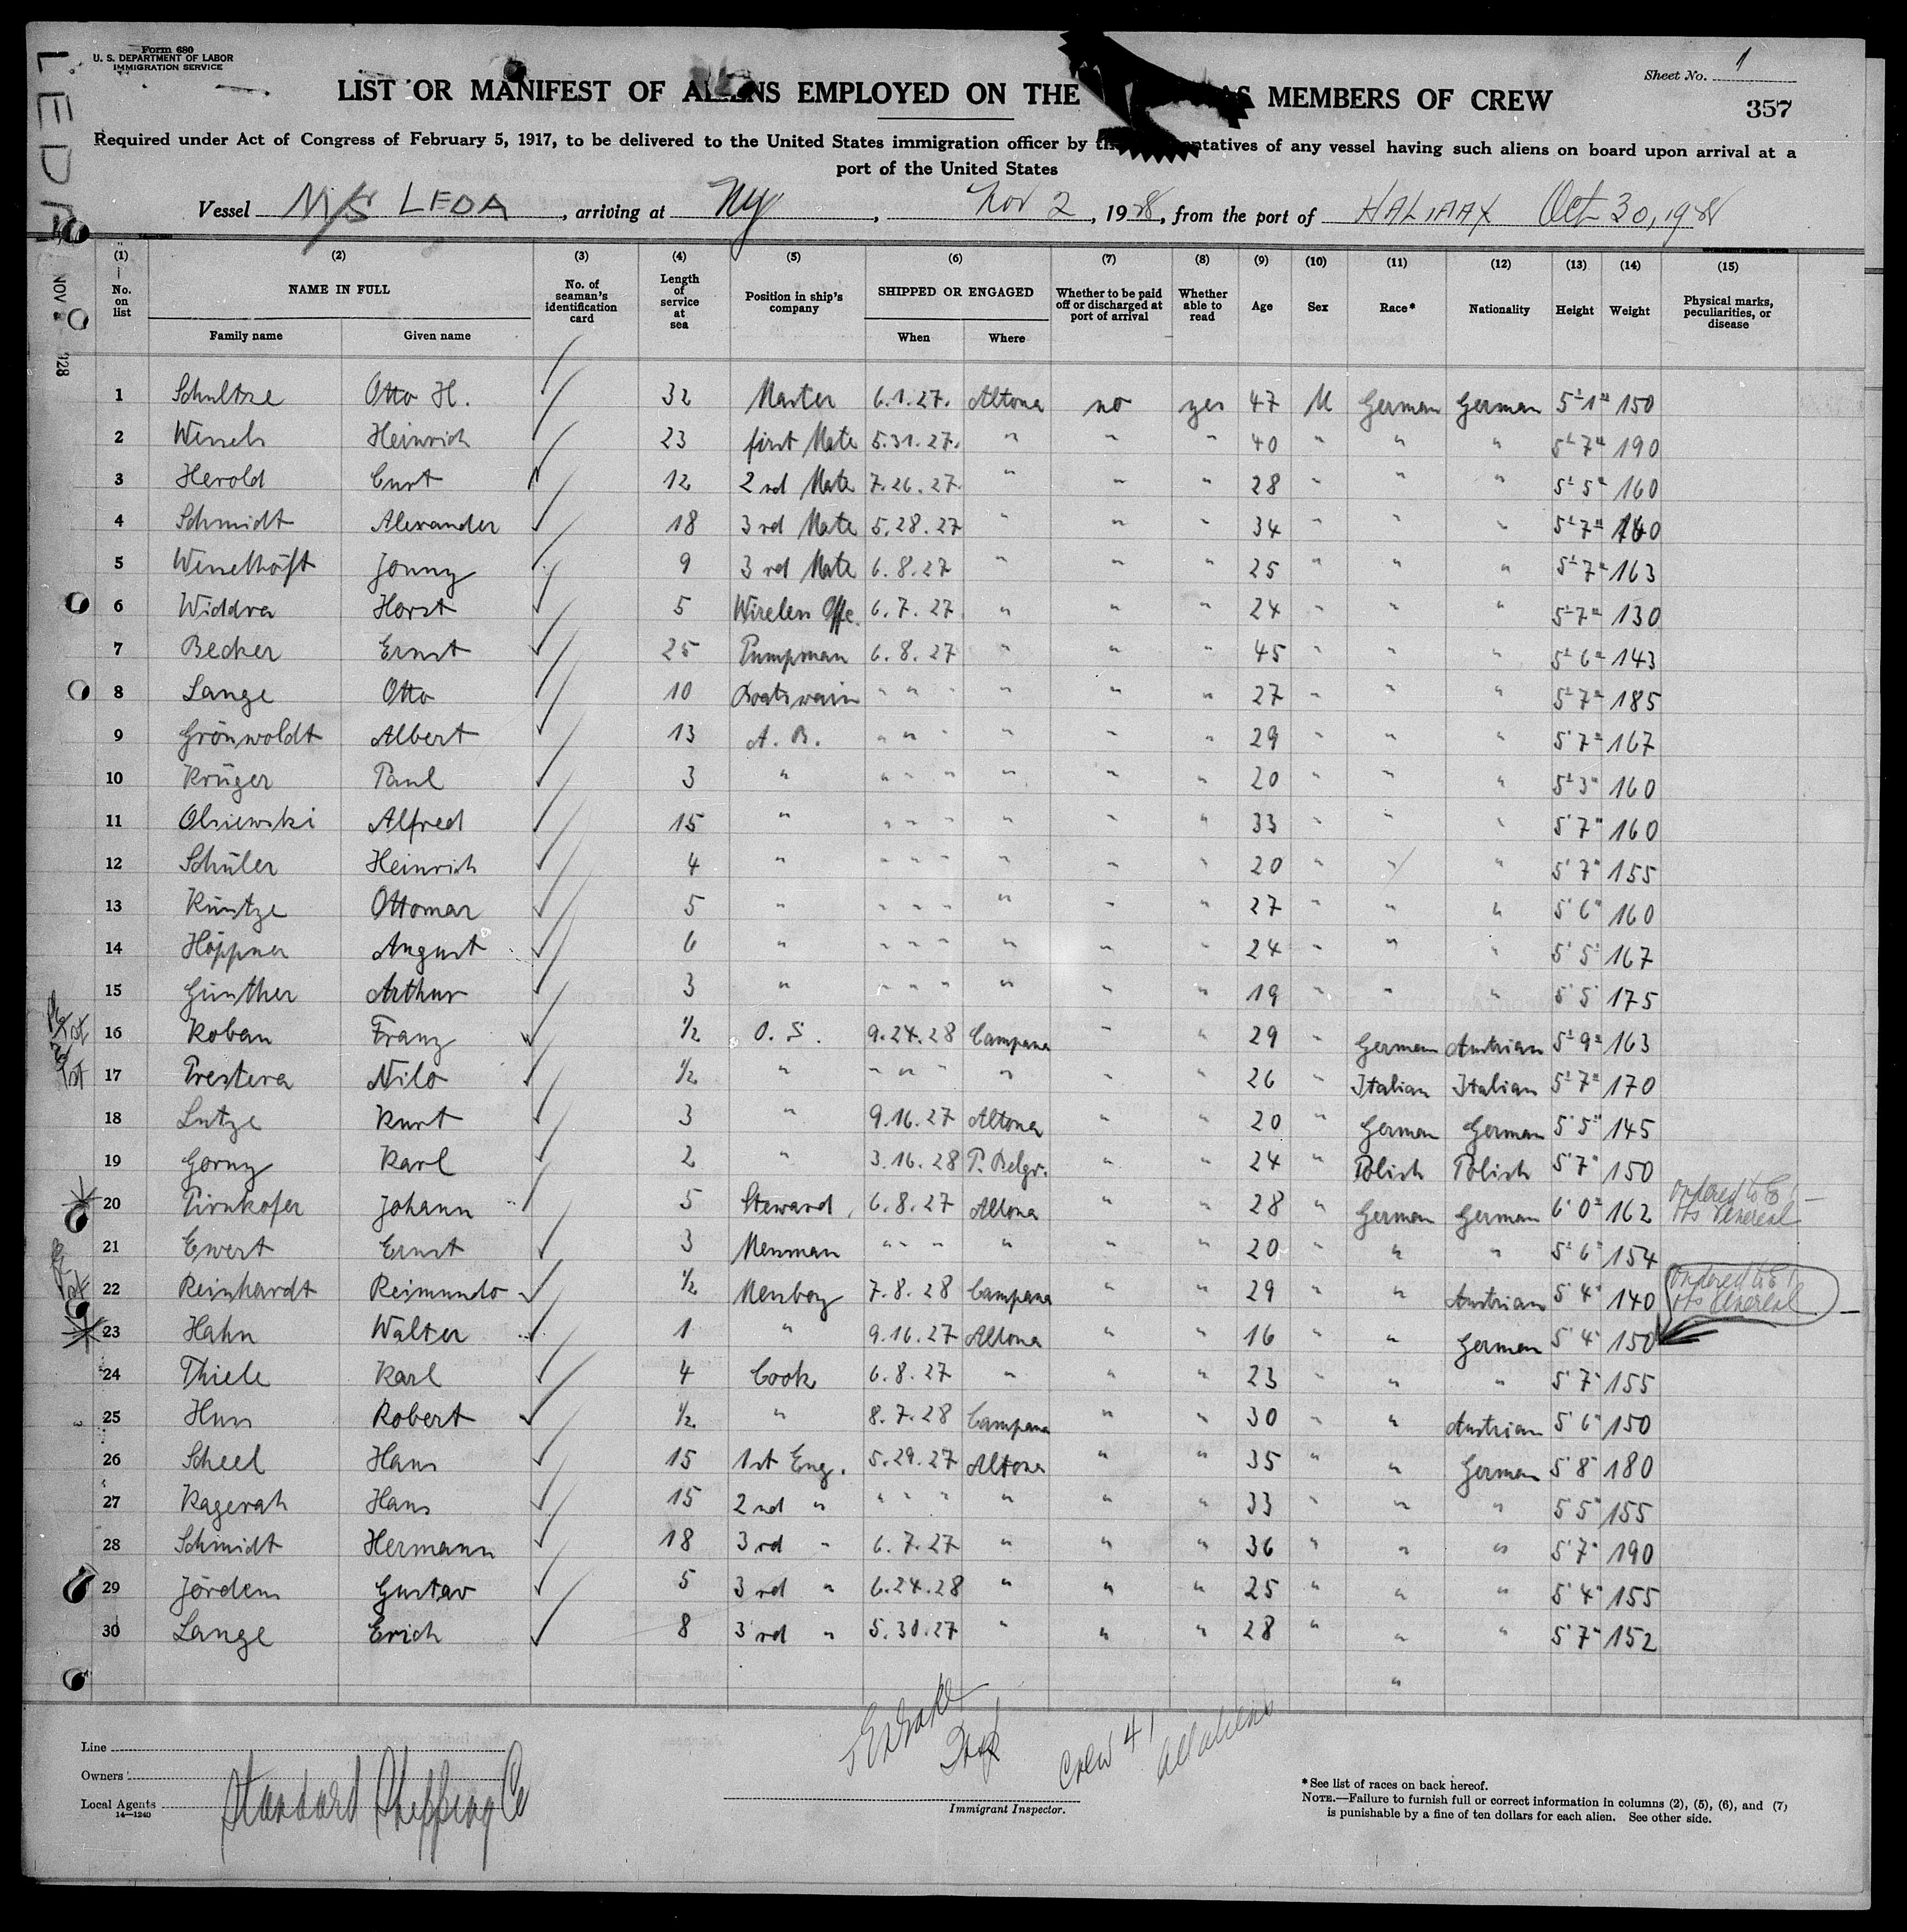 Form 680
U. S. DEPARTMENT OF LABOR
IMMIGRATION SERVICE
Sheet No. 1
LIST OR MANIFEST OF ALIENS EMPLOYED ON THE AS MEMBERS OF CREW
357
Required under Act of Congress of February 5, 1917, to be delivered to the United States immigration officer by the representatives of any vessel having such aliens on board upon arrival at a
port of the United States
Vessel M/S LEDA, arriving at NY, Nov 2, 1928, from the port of HALIFAX Oct 30, 1928
LEDA
NOV 1928
(1) No. on list
(2) NAME IN FULL Family name Given name
(3) No. of seaman's identification card
(4) Length of service at sea
(5) Position in ship's company
(6) SHIPPED OR ENGAGED When Where
(7) Whether to be paid off or discharged at port of arrival
(8) Whether able to read
(9) Age
(10) Sex
(11) Race*
(12) Nationality
(13) Height
(14) Weight
(15) Physical marks, peculiarities, or disease
1 Schultze Otto H. 32 Master 6.1.27. Altona no yes 47 M German German 5' 1" 150
2 Wessels Heinrich 23 first Mate 5.31.27. " " " 40 " " " 5' 7" 190
3 Herold Curt 12 2nd Mate 7.26.27. " " " 28 " " " 5' 5" 160
4 Schmidt Alexander 18 3rd Mate 5.28.27 " " " 34 " " " 5' 7" 140
5 Wesselhöft Jonny 9 3rd Mate 6.8.27 " " " 25 " " " 5' 7" 163
6 Widdra Horst 5 Wireless Offc. 6.7.27. " " " 24 " " " 5' 7" 130
7 Becker Ernst 25 Pumpman 6.8.27 " " " 45 " " " 5' 6" 143
8 Lange Otto 10 Boatswain " " " " " " 27 " " " 5' 7" 185
9 Grönwoldt Albert 13 A. B. " " " " " " 29 " " " 5' 7" 167
10 Krüger Paul 3 " " " " " " " 20 " " " 5' 3" 160
11 Olsiewski Alfred 15 " " " " " " " 33 " " " 5' 7" 160
12 Schüler Heinrich 4 " " " " " " " 20 " " " 5' 7" 155
13 Küntze Ottomar 5 " " " " " " " 27 " " " 5' 6" 160
14 Höppner August 6 " " " " " " " 24 " " " 5' 5" 167
15 Günther Arthur 3 " " " " " " " 19 " " " 5' 5" 175
16 Koban Franz 1/2 O. S. 9.24.28 Campana " " 29 " German Austrian 5' 9" 163
17 Prestera Nilo 1/2 " " " " " " " 26 " Italian Italian 5' 7" 170
18 Lutze Kurt 3 " 9.16.27 Altona " " 20 " German German 5' 5" 145
19 Gorny Karl 2 " 3.16.28 P. Belgr. " " 24 " Polish Polish 5' 7" 150
20 Pirnkofer Johann 5 Steward 6.8.27 Altona " " 28 " German German 6' 0" 162
21 Ewert Ernst 3 Messman " " " " " " 20 " " " 5' 6" 154
22 Reinhardt Reimundo 1/2 Messboy 7.8.28 Campana " " 29 " " Austrian 5' 4" 140
23 Hahn Walter 1 " 9.16.27 Altona " " 16 " " German 5' 4" 150
24 Thiele Karl 4 Cook 6.8.27 " " " 23 " " " 5' 7" 155
25 Huss Robert 1/2 " 8.7.28 Campana " " 30 " " Austrian 5' 6" 150
26 Scheel Hans 15 1st Eng. 5.29.27 Altona " " 35 " " German 5' 8" 180
27 Kagerah Hans 15 2nd " " " " " " " 33 " " " 5' 5" 155
28 Schmidt Hermann 18 3rd " 6.7.27 " " " 36 " " " 5' 7" 190
29 Jördens Gustav 5 3rd " 6.24.28 " " " 25 " " " 5' 4" 155
30 Lange Erich 8 3rd " 5.30.27 " " " 28 " " " 5' 7" 152
"
ordered to
Hs Venereal
ordered to
Hs Venereal
Crew 41
all aliens
Line
Owners
Local Agents Standard Shipping Co
14—1240
Immigrant Inspector.
*See list of races on back hereof.
NOTE.—Failure to furnish full or correct information in columns (2), (5), (6), and (7)
is punishable by a fine of ten dollars for each alien. See other side.